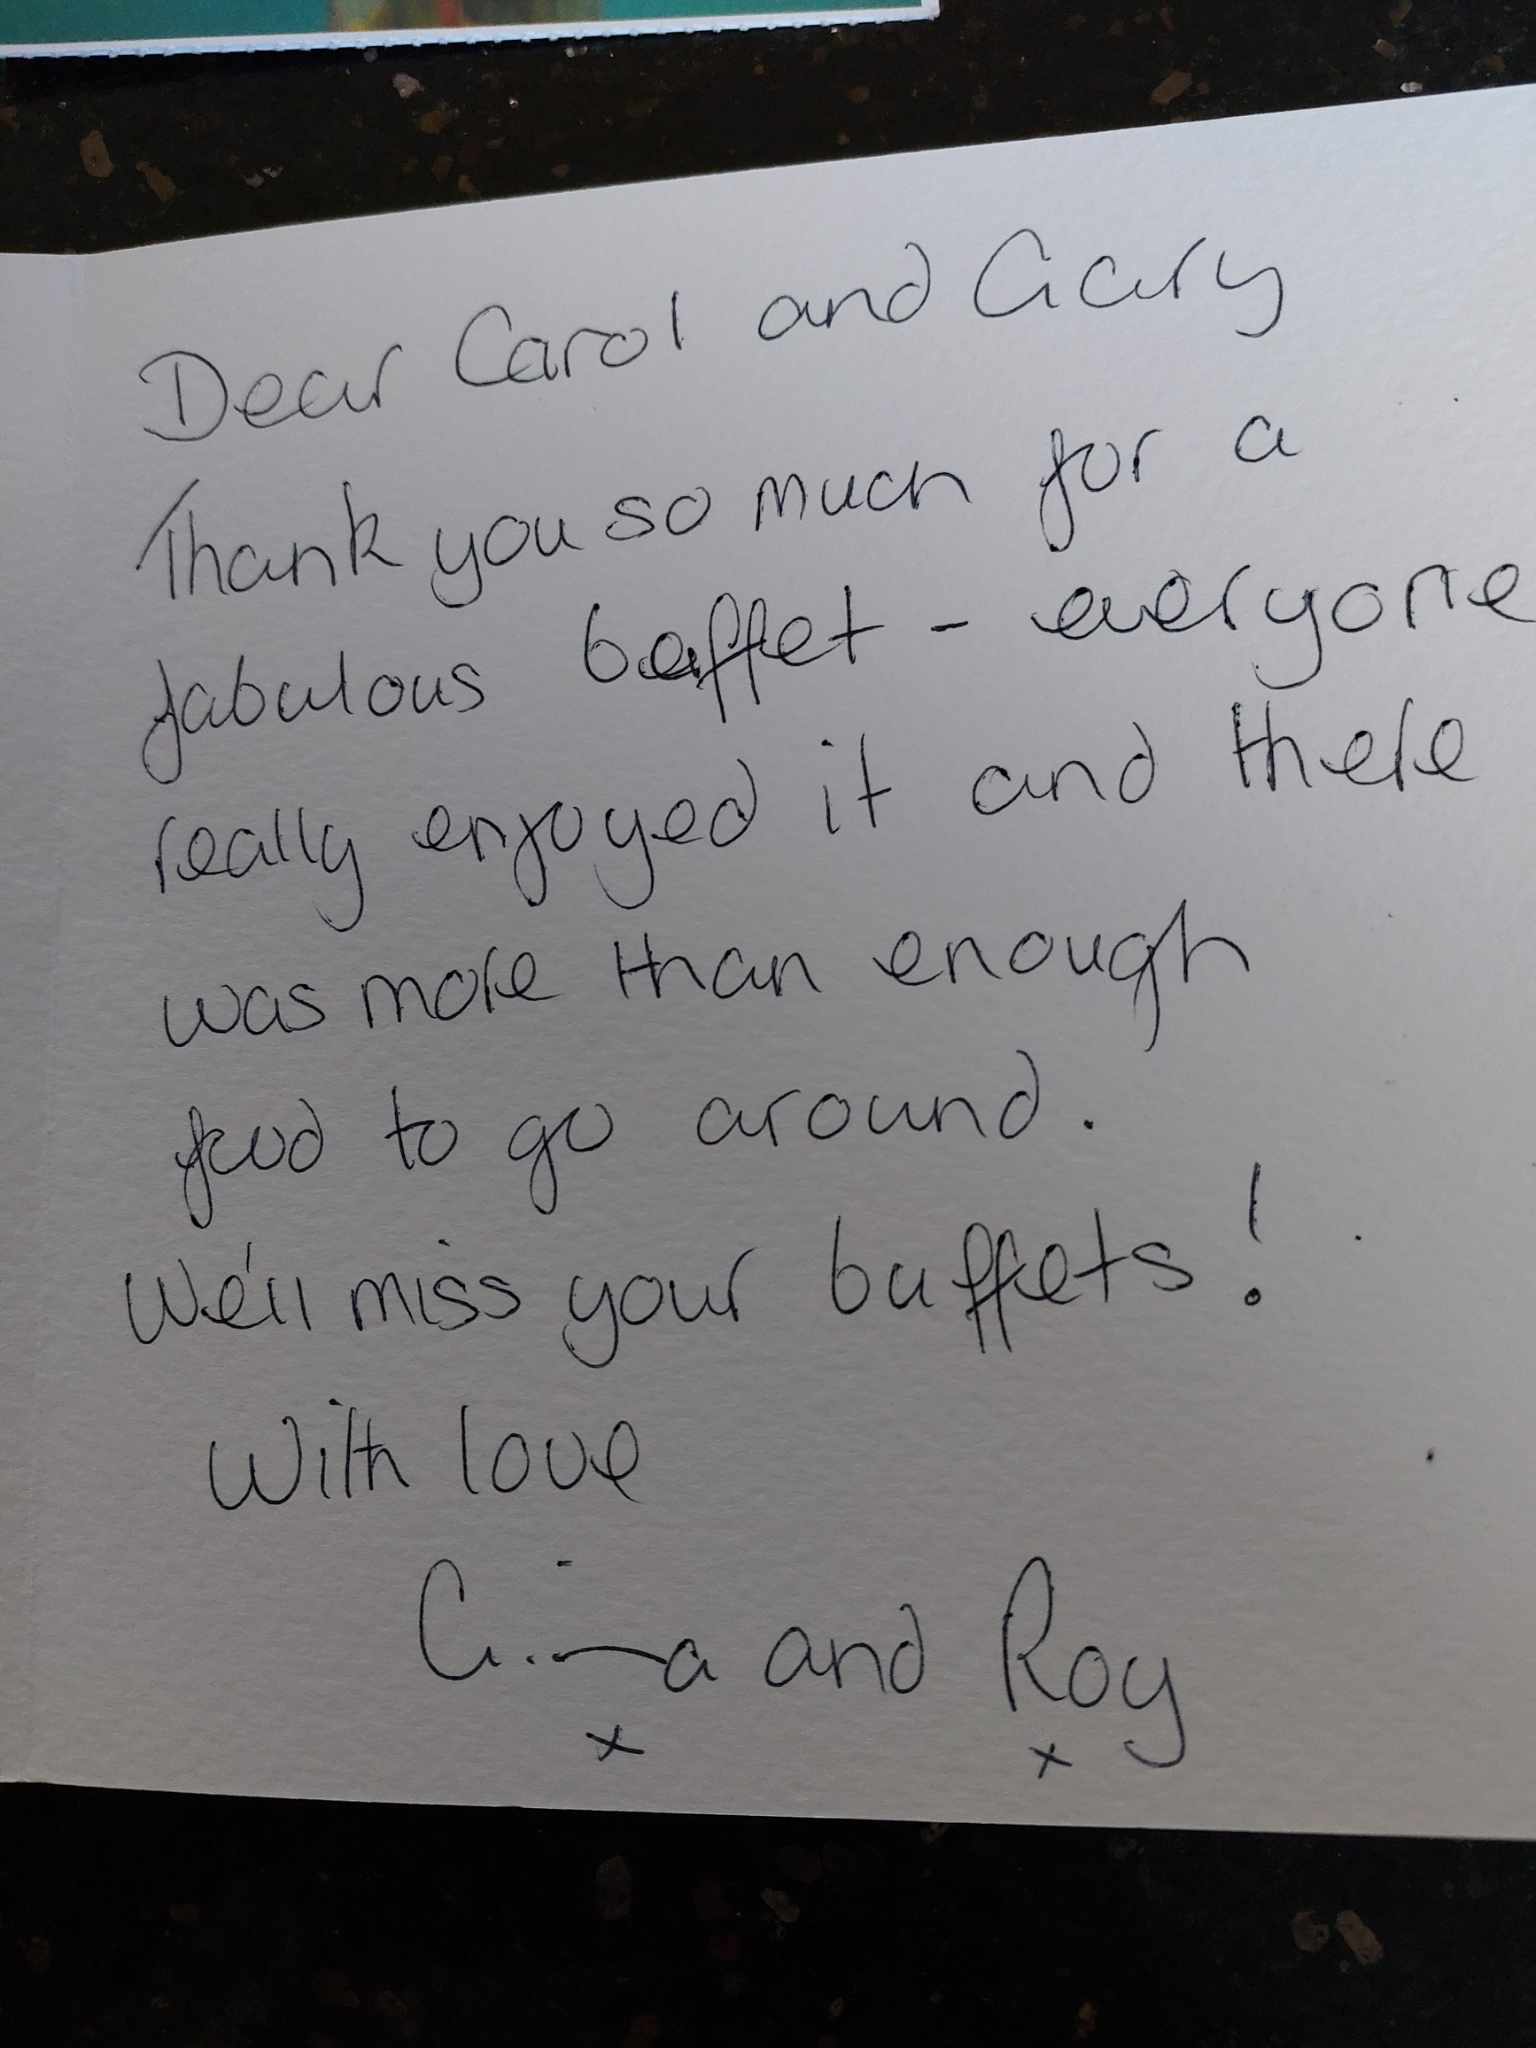 Dear Carol and Gary
Thank you so much for a
fabulous buffet - everyone
really enjoyed it and there
was more than enough
food to go around.
We'll miss your buffets!
With love
Gina and Roy
x x